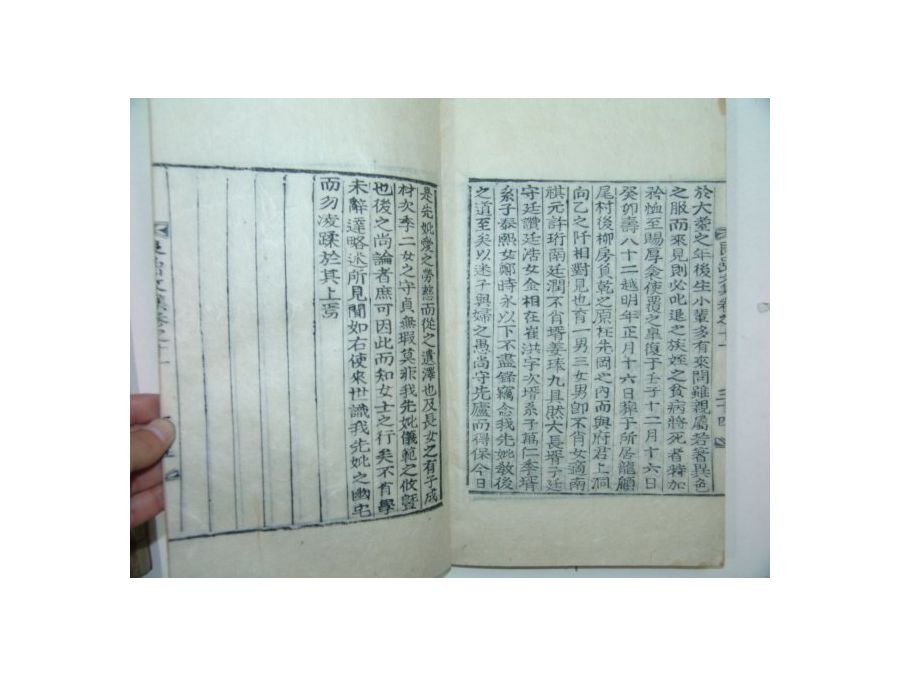 於大耋之年後生小輩多有來問雖親屬若著異色
之服而來見則必叱退之族姪之貧病將死者特加
矜恤至賜厚念使覆之皐復于壬子十二月十六日
癸卯壽八十二越明年正月十六日窆于所居龍顧
尾村後柳房負乾之原在先岡之內而與府君上洞
向乙之阡相對見也育一男三女男卽不肖女適南
祺元許珩南廷潤不肖壻姜瑧九具然大長壻子廷
守廷讚廷浩女金相在崔洪字次壻系子萬仁季壻
系子泰熙女鄭時永以下不盡錄竊念我先妣敎後
之道至矣以迷子與婦之愚尚守先廬而得保今日
三十四
是先妣愛之勞慈而從之遺澤也及長女之有子成
材次季二女之守貞無瑕莫非我先妣儀範之攸曁
也後之尚論者庶可因此而知女士之行矣不肖學
未辭達略述所見聞如右使來世識我先妣之幽宅
而勿凌蹂於其上焉